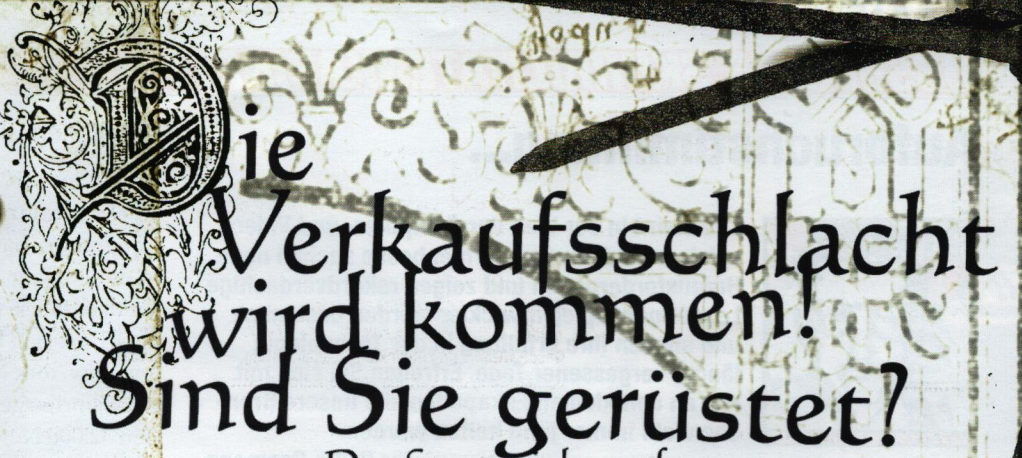 Die
Verkaufsschlacht
wird kommen!
Sind Sie gerüstet?